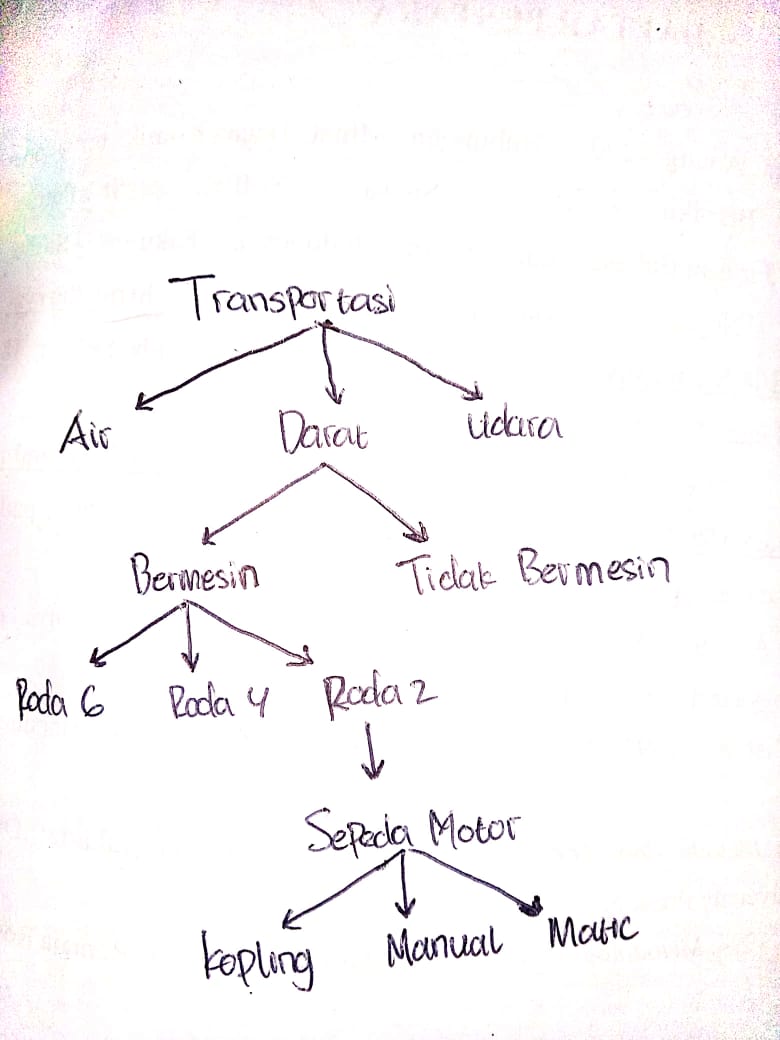 Transportasi
Air Darat Udara
Bermesin Tidak Bermesin
Roda 6 Roda 4 Roda 2
Sepeda Motor
Kopling Manual Matic